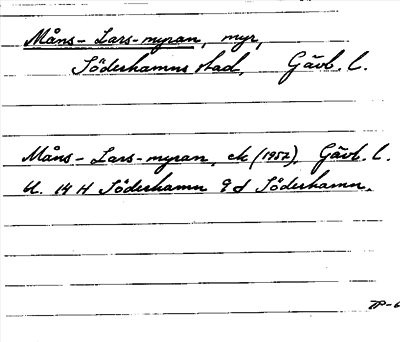 Måns-Lars-myran, myr,
Söderhamns stad, Gävl. l.
Måns-Lars-myran, ek (1957), Gävl. l.
bl. 14 H Söderhamn 9 d Söderhamn.